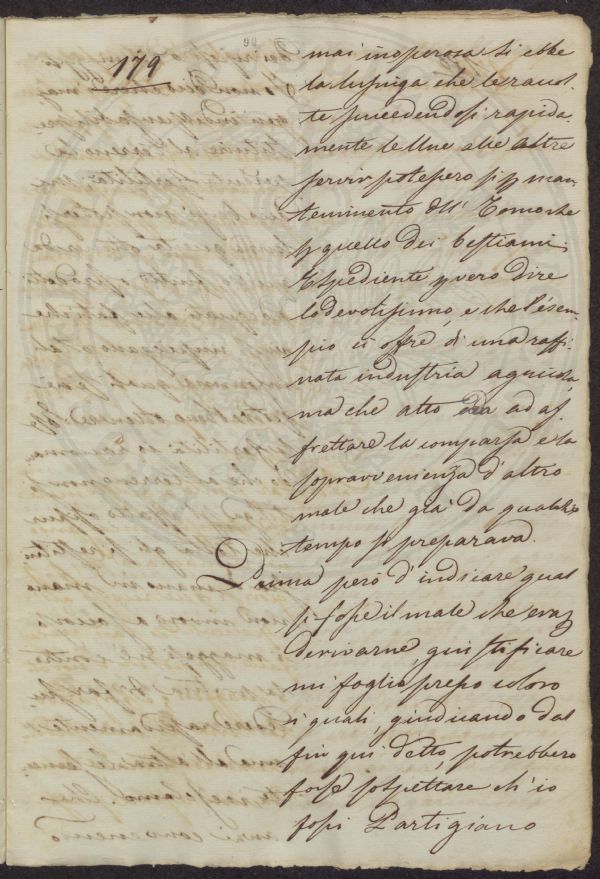 90
179
mai inoperosa si ebbe
la lusinga che le racol-
te succedendosi rapida-
mente le Une alle altre
servir potessero sì p man-
tenimento dll' Uomo che
p quello dei bestiami.
Espediente p vero dire
lodevolissimo, e che l'ésem-
pio ci offre di una raffi-
nata industria agricola,
ma che atto era ad af-
frettare la comparsa e la
sopravvenienza d'altro
male che già da qualche
tempo si preparava.
Prima però d'indicare qual
si fosse il male che era p
derivarne, giustificare
mi foglio presso coloro
i quali, giudicando dal
fin qui detto, potrebbero
forse sospettare ch'io
fossi Partigiano